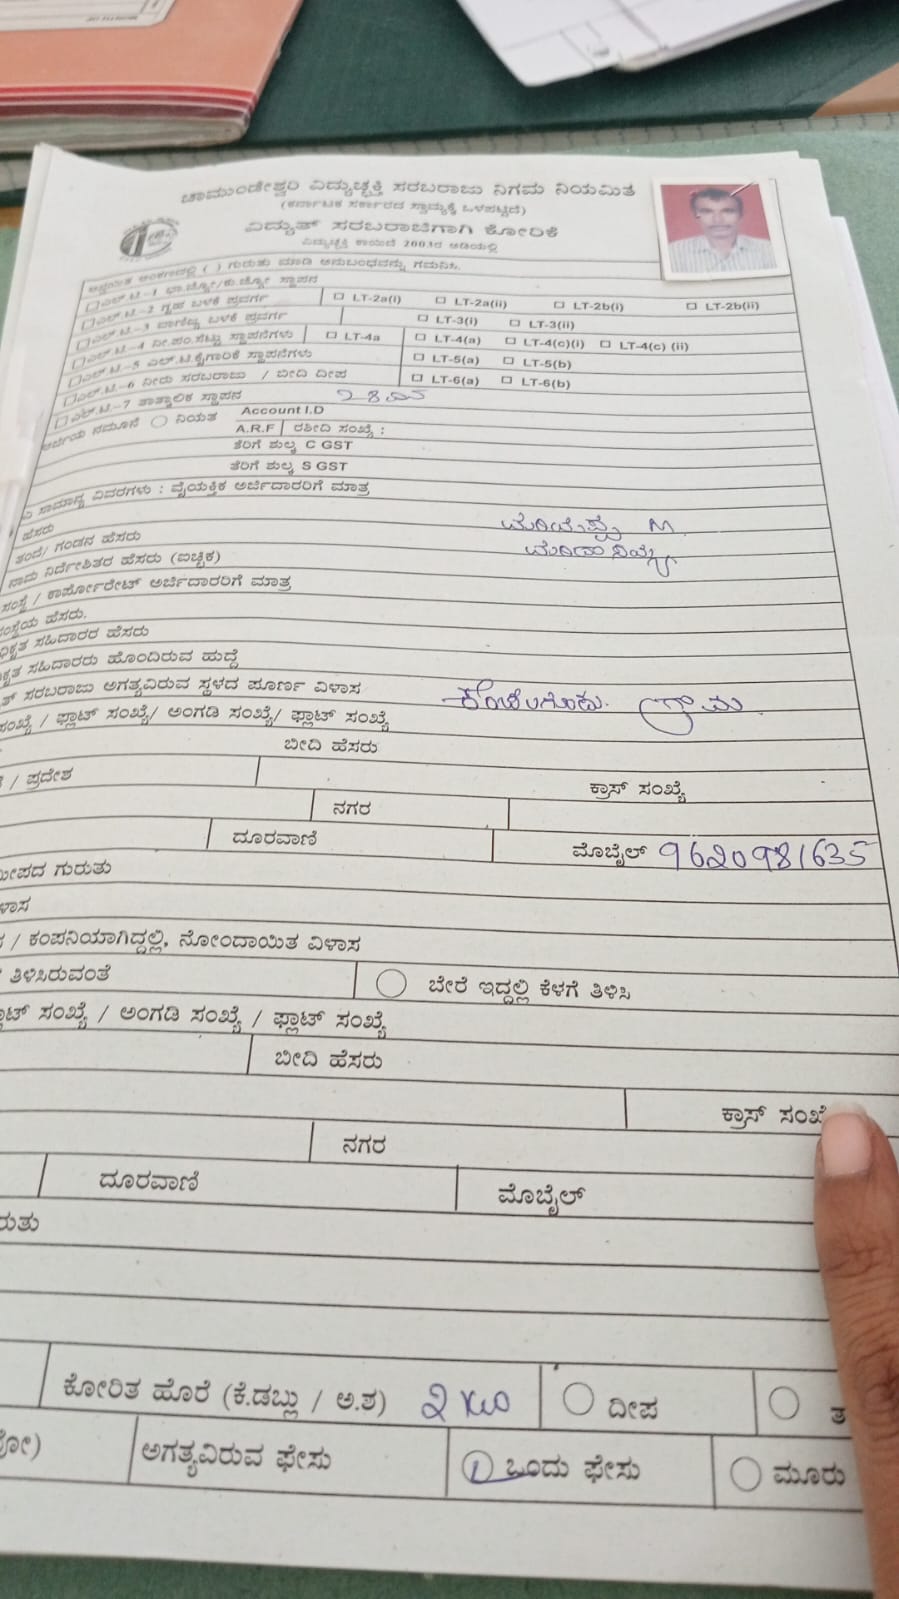 ಚಾಮುಂಡೇಶ್ವರಿ ವಿದ್ಯುಚ್ಛಕ್ತಿ ಸರಬರಾಜು ನಿಗಮ ನಿಯಮಿತ
(ಕರ್ನಾಟಕ ಸರ್ಕಾರದ ಸ್ವಾಮ್ಯಕ್ಕೆ ಒಳಪಟ್ಟಿದೆ)
ವಿದ್ಯುತ್ ಸರಬರಾಜಿಗಾಗಿ ಕೋರಿಕೆ
ವಿದ್ಯುಚ್ಛಕ್ತಿ ಕಾಯಿದೆ 2003ರ ಅಡಿಯಲ್ಲಿ
ಅಂಕಣದಲ್ಲಿ ( ) ಗುರುತು ಮಾಡಿ ಅನುಬಂಧವನ್ನು ಗಮನಿಸಿ.
ಎಲ್.ಟಿ.-1 ಭಾ.ಜ್ಯೋ/ಕು.ಜ್ಯೋ ಸ್ಥಾಪನ
ಎಲ್.ಟಿ.-2 ಗೃಹ ಬಳಕೆ ಪ್ರವರ್ಗ LT-2a(i) LT-2a(ii) LT-2b(i) LT-2b(ii)
ಎಲ್.ಟಿ.-3 ವಾಣಿಜ್ಯ ಬಳಕೆ ಪ್ರವರ್ಗ LT-3(i) LT-3(ii)
ಎಲ್.ಟಿ.-4 ನೀ.ಪಂ.ಸೆಟ್ಟು ಸ್ಥಾಪನೆಗಳು LT-4a LT-4(a) LT-4(c)(i) LT-4(c) (ii)
ಎಲ್.ಟಿ.-5 ಎಲ್.ಟಿ.ಕೈಗಾರಿಕೆ ಸ್ಥಾಪನೆಗಳು LT-5(a) LT-5(b)
ಎಲ್.ಟಿ.-6 ನೀರು ಸರಬರಾಜು / ಬೀದಿ ದೀಪ LT-6(a) LT-6(b)
ಎಲ್.ಟಿ.-7 ತಾತ್ಕಾಲಿಕ ಸ್ಥಾಪನ
ಅರ್ಜಿಯ ನಮೂನೆ ನಿಯತ Account I.D
A.R.F ರಶೀದಿ ಸಂಖ್ಯೆ :
ತೆರಿಗೆ ಶುಲ್ಕ C GST
ತೆರಿಗೆ ಶುಲ್ಕ S GST
ಸಾಮಾನ್ಯ ವಿವರಗಳು : ವೈಯಕ್ತಿಕ ಅರ್ಜಿದಾರರಿಗೆ ಮಾತ್ರ
ಹೆಸರು M
ತಂದೆ/ ಗಂಡನ ಹೆಸರು
ನಾಮ ನಿರ್ದೇಶಿತರ ಹೆಸರು (ಐಚ್ಛಿಕ)
ಸಂಸ್ಥೆ / ಕಾರ್ಪೋರೇಟ್ ಅರ್ಜಿದಾರರಿಗೆ ಮಾತ್ರ
ಸಂಸ್ಥೆಯ ಹೆಸರು.
ಸಹಿದಾರರ ಹೆಸರು
ಸಹಿದಾರರು ಹೊಂದಿರುವ ಹುದ್ದೆ
ಸರಬರಾಜು ಅಗತ್ಯವಿರುವ ಸ್ಥಳದ ಪೂರ್ಣ ವಿಳಾಸ
ಸಂಖ್ಯೆ / ಫ್ಲಾಟ್ ಸಂಖ್ಯೆ/ ಅಂಗಡಿ ಸಂಖ್ಯೆ/ ಫ್ಲಾಟ್ ಸಂಖ್ಯೆ ಗ್ರಾಮ
ಬೀದಿ ಹೆಸರು
/ ಪ್ರದೇಶ ಕ್ರಾಸ್ ಸಂಖ್ಯೆ
ನಗರ
ದೂರವಾಣಿ ಮೊಬೈಲ್ 9620981635
ಗುರುತು
/ ಕಂಪನಿಯಾಗಿದ್ದಲ್ಲಿ, ನೋಂದಾಯಿತ ವಿಳಾಸ
ತಿಳಿಸಿರುವಂತೆ ಬೇರೆ ಇದ್ದಲ್ಲಿ ಕೆಳಗೆ ತಿಳಿಸಿ
ಸಂಖ್ಯೆ / ಅಂಗಡಿ ಸಂಖ್ಯೆ / ಫ್ಲಾಟ್ ಸಂಖ್ಯೆ
ಬೀದಿ ಹೆಸರು
ಕ್ರಾಸ್ ಸಂಖ್ಯೆ
ನಗರ
ದೂರವಾಣಿ ಮೊಬೈಲ್
ಕೋರಿತ ಹೊರೆ (ಕೆ.ಡಬ್ಲು / ಅ.ಶ) ದೀಪ
ಅಗತ್ಯವಿರುವ ಫೇಸು ಒಂದು ಫೇಸು ಮೂರು